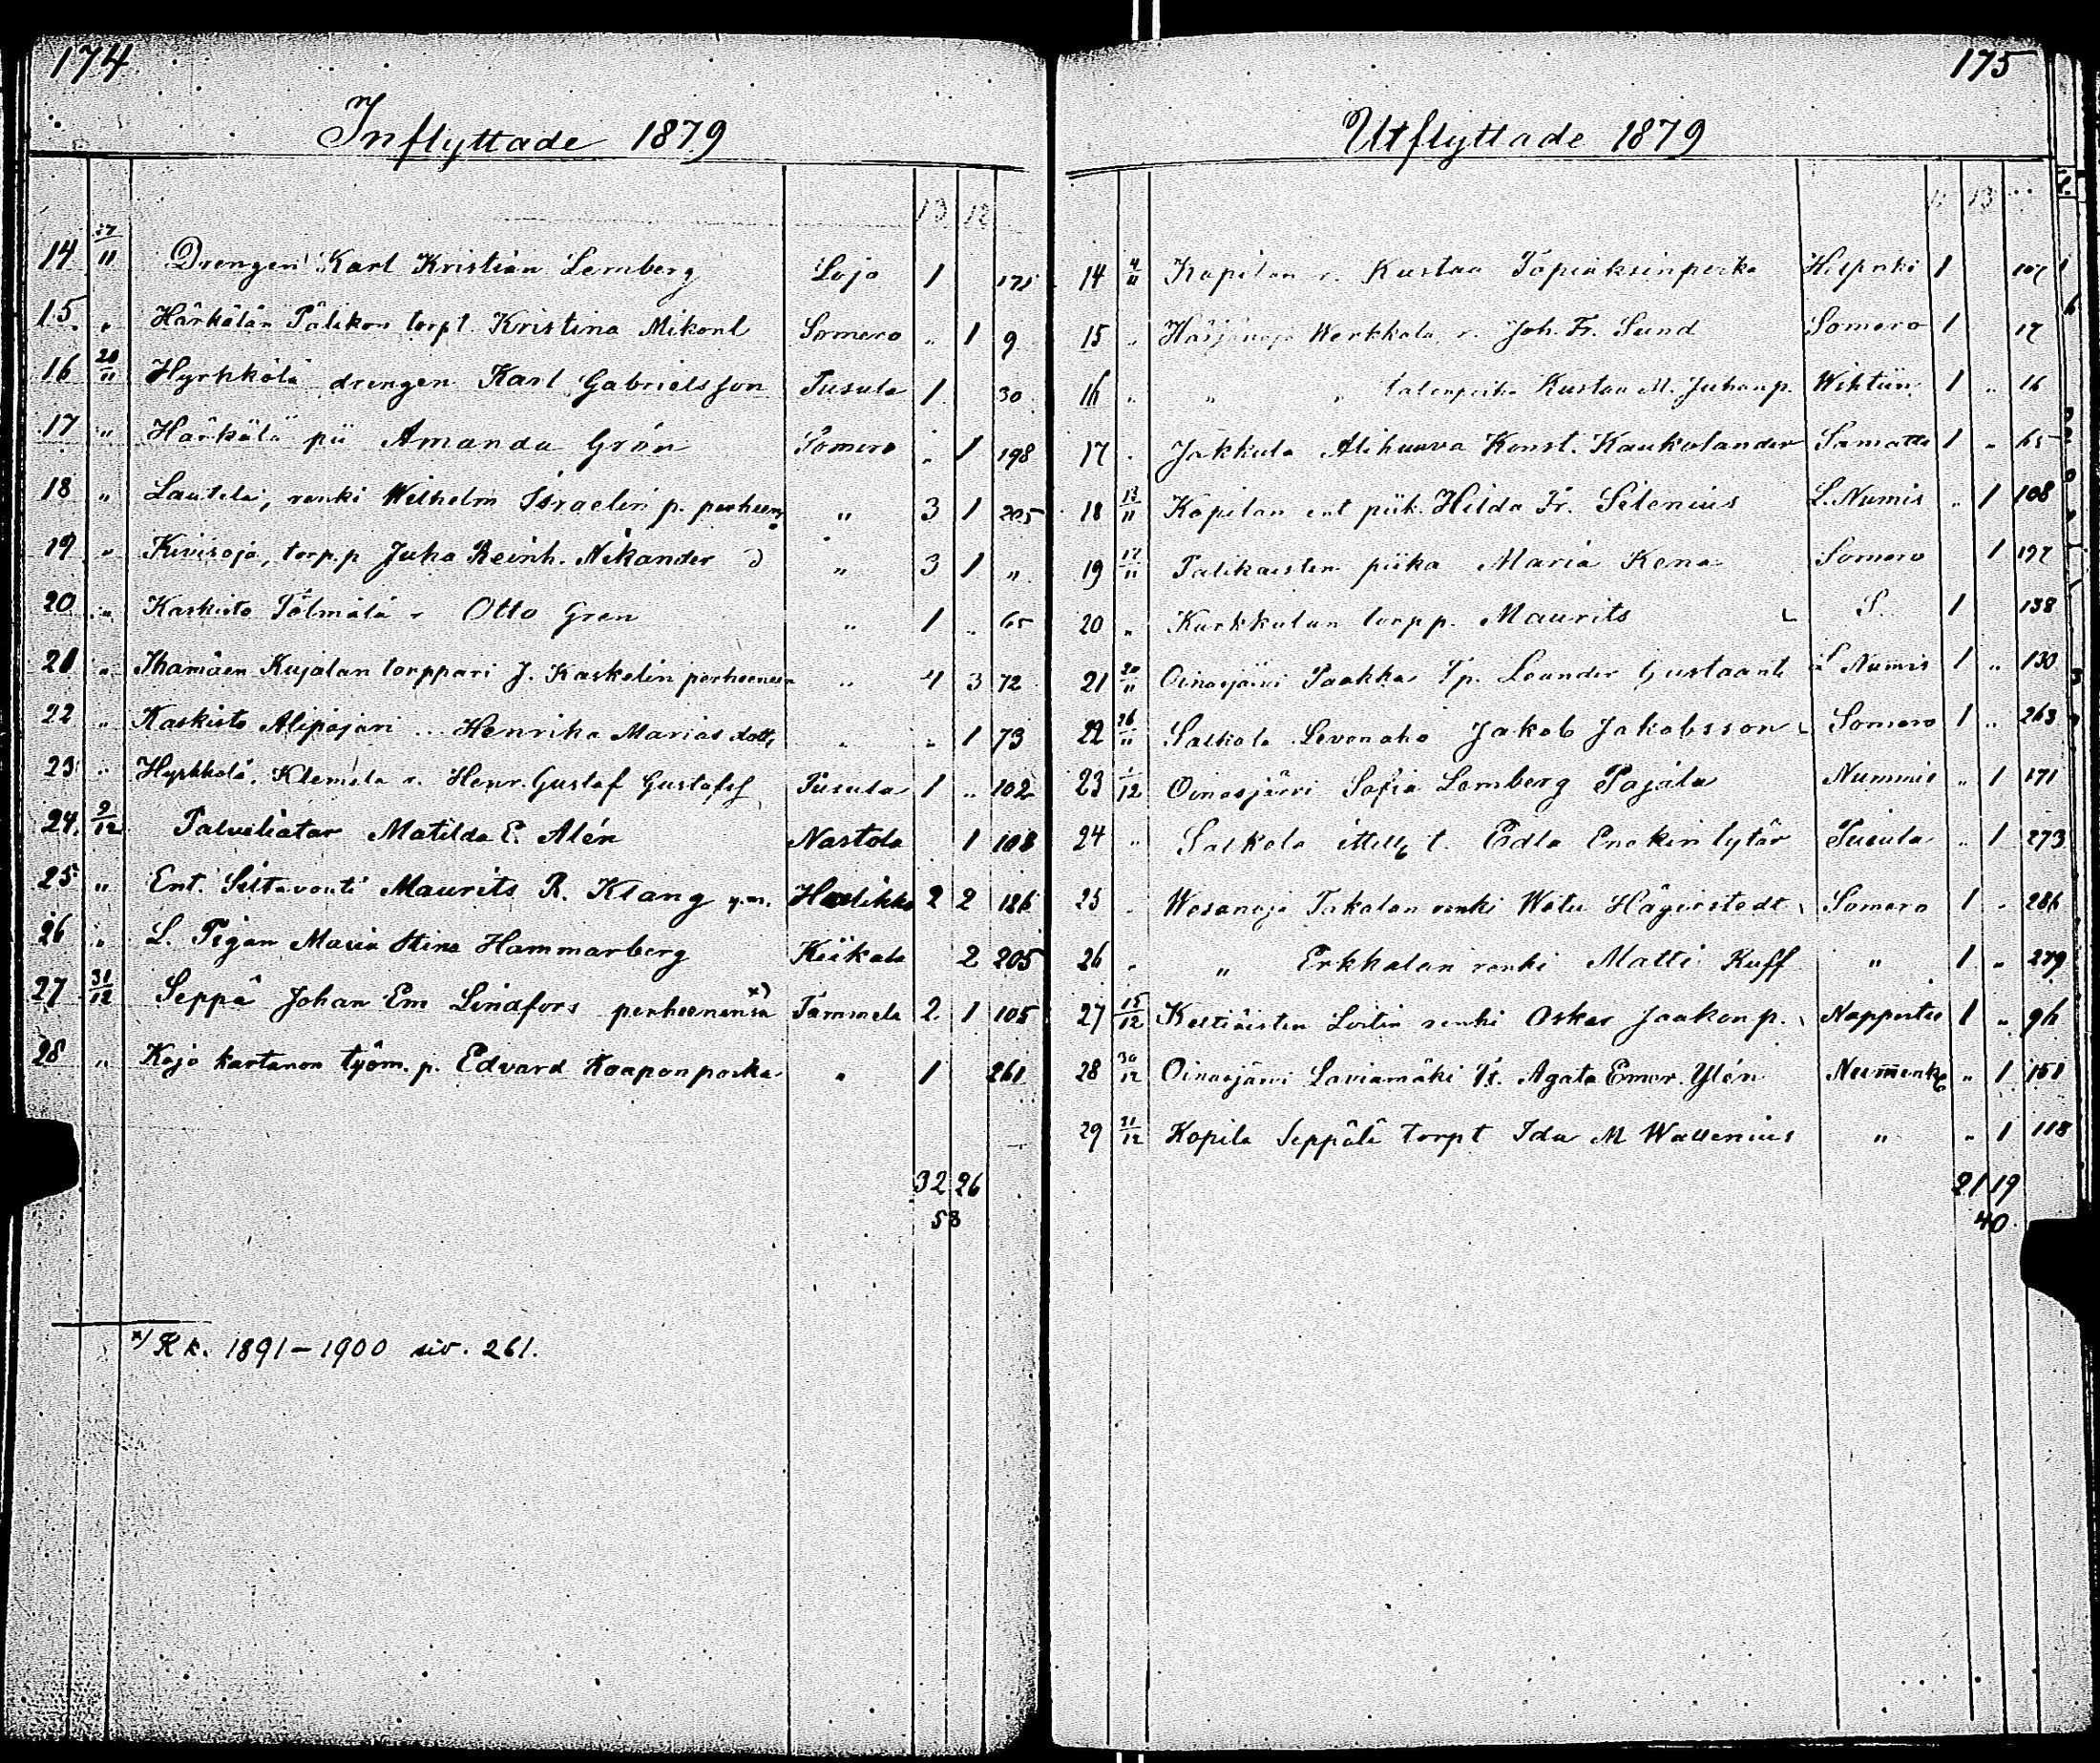 174
Inflyttade 1879
19 12
14 27/11 Drengen Karl Kristian Lemberg Lojo 1 171
15 " Härkälän Pälikön torpt. Kristina Mikont Somero " 1 9
16 20/11 Hyrkkölä drengen Karl Gabrielsson Tusula 1 30
17 " Härkälä pii Amanda Grön Somero " 1 198
18 " Lautela, renki Wilhelm Israelin p. perheen " 3 1 205
19 " Kiviroja, torp.p Juha Reinh. Nikander " 3 1 "
20 " Kaskisto Tölmälä r Otto Gren " 1 " 65
21 " Ihamäen Kujalan torppari J. Kaskelin perheeneen " 4 3 72
22 " Kaskisto Alipajari Henrika Marias dott, " " 1 73
23 " Hyrkkölä, Klemelä r. Henr. Gustaf Gustafss Tusula 1 " 102
24 9/12 Palveliatar Matilda E. Alén Nastola 1 108
25 " Ent. Siltavouti Maurits R. Klang y.m. Halikko 2 2 186
26 " L. Pigan Maria Stina Hammarberg Kiikala 2 205
27 31/12 Seppä Johan Em Lindfors perheenensä x) Tammela 2 1 105
28 " Kojo kartanon työm. p. Edvard Kaaponpoika " 1 261
32 26
58
x) Rk. 1891–1900 siv. 261.
175
Utflyttade 1879
14 4/11 Kopilan r. Kustaa Topiaksenpoika Helsinki 1 107
15 " Härjänoja Werkkala, r. Joh. Fr. Sund Somero 1 17
16 " " " talonpoika Kustaa M. Juhanp. Wihtiin 1 " 16
17 " Jakkula Alihuova Konst. Kaukolander Samatti 1 " 65
18 13/11 Kopilan ent piik. Hilda Fr. Selenius L. Numis " 1 108
19 17/11 Talikaisten piika Maria Kena Somero 1 197
20 " Kurkkulan torpp. Maurits S. 1 138
21 20/11 Oinasjärvi Paakka Leander Gustaant L Numis 1 " 130
22 26/11 Salkola Levonaho Jakob Jakobsson Somero 1 " 263
23 1/12 Oinasjärvi Sofia Lemberg Pajala Nummis " 1 171
24 " Salkola t. Edla Enokin tytär Tusula " 1 273
25 " Wesanoja Takalan renki Watu Hägerstedt Somero 1 " 286
26 " " Erkkalan renki Matti Kuff " 1 " 279
27 15/12 Keltiäisten Loitin renki Oskar Jaakon p. Noppertee 1 " 96
28 30/12 Oinasjärvi Laviamäki Agata Emer. Ylén " 1 151
29 31/12 Kopila Seppälä torpt Ida M Wallenius " " 1 118
21 19
40